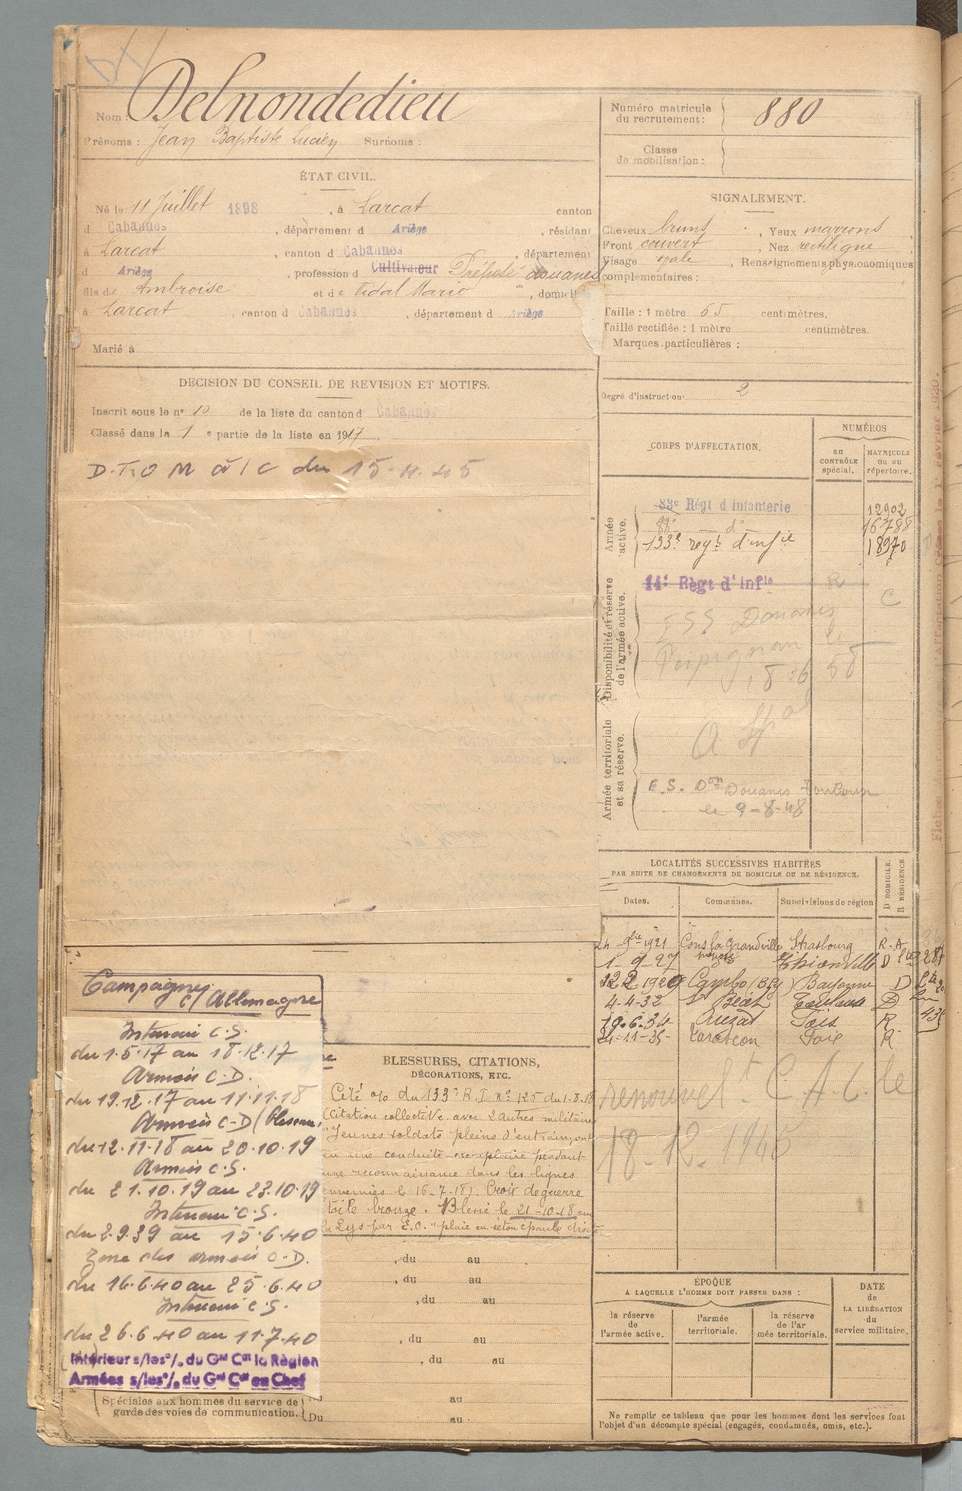 Nom : Delnondedieu
Prénoms : Jean Baptiste Lucien Surnoms :
ÉTAT CIVIL.
Né le 11 Juillet 1898, à Larcat canton
d Cabannes, département d Ariège, résidant
à Larcat, canton d Cabannes, département
d Ariège, profession d Cultivateur Préposé douanes
fils de Ambroise et de Vidal Marie, domicilié
à Larcat, canton d Cabannes, département d Ariège
Marié à
DECISION DU CONSEIL DE REVISION ET MOTIFS.
Inscrit sous le n° 10 de la liste du canton d Cabannes
Classé dans la 1 e partie de la liste en 1917.
D.T.O M à/c du 15-4-45
Campagnes
c/ Allemagne
Intérieur C.S.
du 1.5.17 au 18.12.17
Armées C.D.
du 19.12.17 au 11.11.18
Armées C-D (blessure)
du 12.11.18 au 20.10.19
Armées C.S.
du 21.10.19 au 23.10.19
Intérieur C.S.
du 2.9.39 au 15.6.40
Zone des armées C-D.
du 16.6.40 au 25.6.40
Intérieur C.S.
du 26.6.40 au 11.7.40
Intérieur s/les °/. du Gal Ct la Région
Armées s/les °/. du Gal Ct en Chef
Spéciales aux hommes du service de
garde des voies de communication.
Du
BLESSURES, CITATIONS,
DÉCORATIONS, ETC.
Cité o/o du 133e R.I n° 125 du 1.8.18
(Citation collective avec 2 autres militaires
"Jeunes soldats pleins d'entrain, ont
eu une conduite exemplaire pendant
une reconnaissance dans les lignes
ennemies le 16-7-18). Croix de guerre
étoile bronze. Blessé le 21-10-18 au
la Lys par E.O. "plaie en séton épaule droite
, du au
, du au
, du au
, du au
, du au
au
au
Numéro matricule
du recrutement : 880
Classe
de mobilisation :
SIGNALEMENT.
Cheveux bruns, Yeux marrons
Front couvert, Nez rectiligne
Visage ovale, Renseignements physionomiques
complémentaires :
Taille : 1 mètre 65 centimètres.
Taille rectifiée : 1 mètre centimètres.
Marques particulières :
Degré d'instruction : 2
CORPS D'AFFECTATION.
NUMÉROS
au
CONTRÔLE
spécial.
MATRICULE
ou au
répertoire.
Armée
active.
83e Régt d'Infanterie 12902
88e d° 16788
133e regt d'infie 18970
Disponibilité et réserve
de l'armée active.
14e Régt d'Infie R
C
Douanes
Perpignan
Armée territoriale
et sa réserve.
E.S. Don Douanes Toulouse
le 9-8-48
LOCALITÉS SUCCESSIVES HABITÉES
PAR SUITE DE CHANGEMENTS DE DOMICILE OU DE RÉSIDENCE.
Dates. Communes. Subdivisions de région D DOMICILE. R RÉSIDENCE
1921 Cons la Grandville Strasbourg R.A
1-9-27 Thionville D
1929 Cambo (BP) Bayonne D
4-4-32 St Béat Toulouse D
19.6.34 Auzat Foix R.
-11-35 Tarascon Foix R
renouvelt C.A.C. le
18-12-1945
ÉPOQUE
A LAQUELLE L'HOMME DOIT PASSER DANS :
la réserve
de
l'armée active.
l'armée
territoriale.
la réserve
de l'ar
mée territoriale.
DATE
de
LA LIBÉRATION
du
service militaire.
Ne remplir ce tableau que pour les hommes dont les services font
l'objet d'un décompte spécial (engagés, condamnés, omis, etc.).